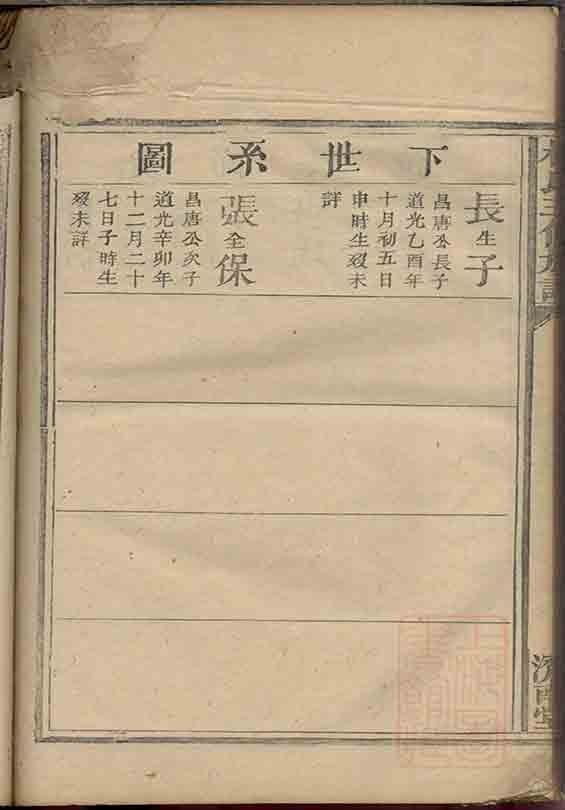 下世系圖
長生子
昌唐公長子
道光乙酉年
十月初五日
申時生歿未
詳
張全保
昌唐公次子
道光辛卯年
十二月二十
七日子時生
歿未詳